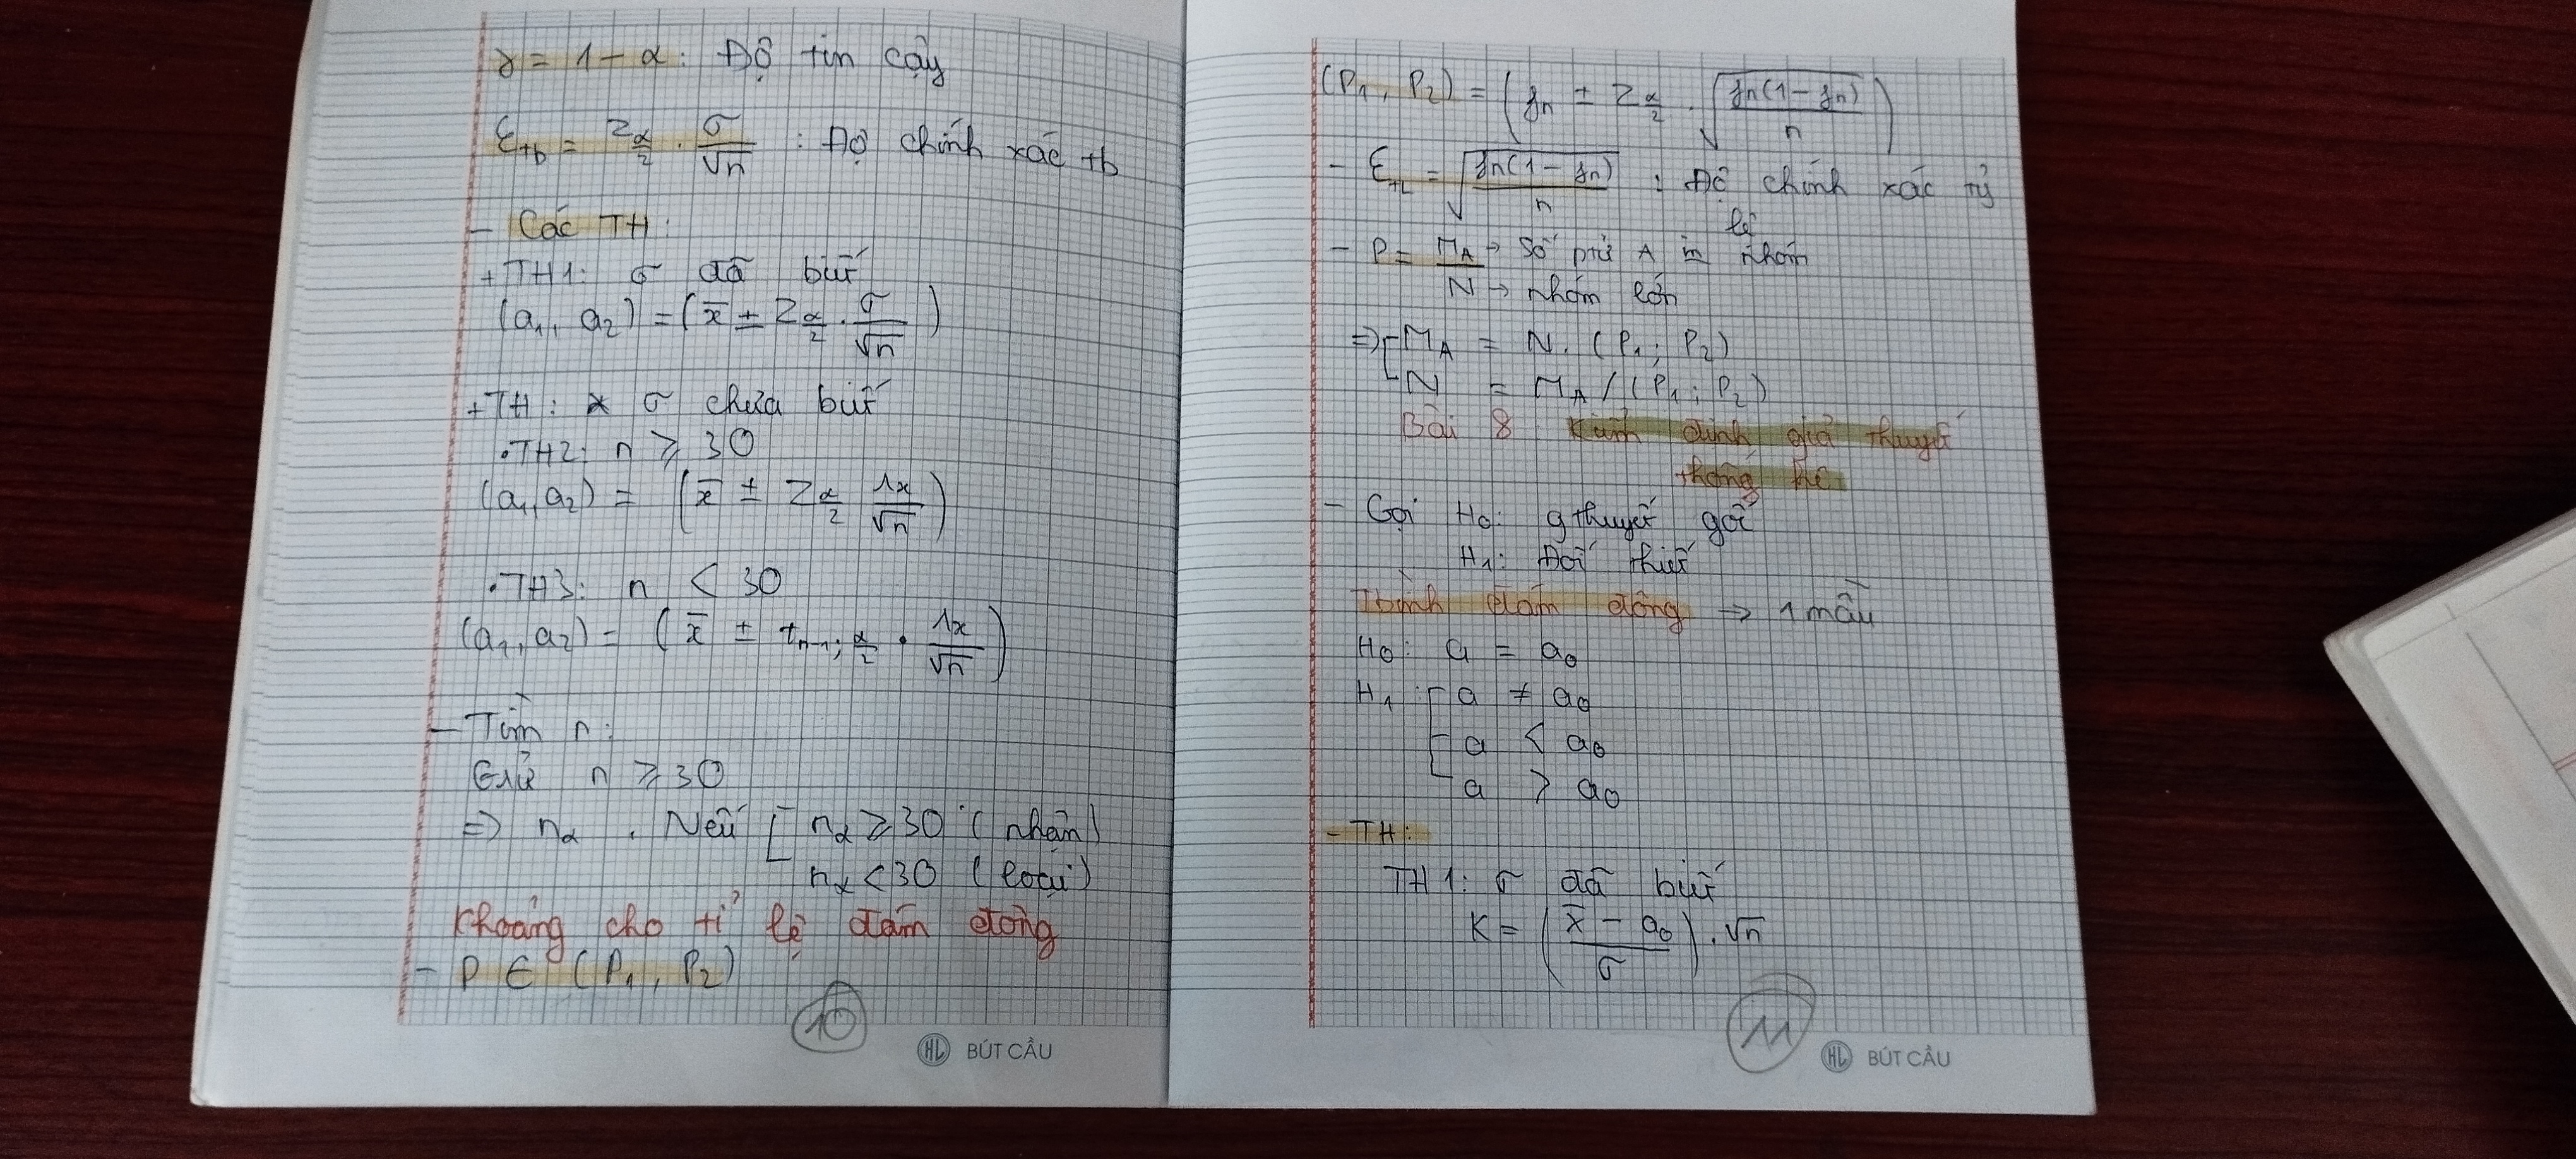 γ = 1 - α : Độ tin cậy
ε_tb = z_{α/2} . σ/√n : Độ chính xác tb
- Các TH:
+ TH1: σ đã biết
(a₁, a₂) = (x̄ ± z_{α/2} . σ/√n)
+ TH: σ chưa biết
• TH2: n ≥ 30
(a₁, a₂) = (x̄ ± z_{α/2} sx/√n)
• TH3: n < 30
(a₁, a₂) = (x̄ ± t_{n-1; α/2} . sx/√n)
- Tìm n:
Giử n ≥ 30
=> n_α . Nếu [ n_α ≥ 30 (nhận)
n_α < 30 (loại)
Khoảng cho tỉ lệ đám đông
- P ∈ (P₁, P₂)
10
HL BÚT CẦU
(P₁, P₂) = (fn ± z_{α/2} . √(fn(1 - fn)/n))
- ε_tL = √(fn(1 - fn)/n) : Độ chính xác tỷ
lệ
- P = M_A/N → Số ptử A in nhóm
N → nhóm lớn
=> [ M_A = N . (P₁; P₂)
N = M_A / (P₁; P₂)
Bài 8 Kiểm định giả thuyết
thống kê
- Gọi H₀: gthuyết gốc
H₁: Đối thiết
Tbình đám đông → 1 mẫu
H₀: a = a₀
H₁: [ a ≠ a₀
a < a₀
a > a₀
- TH:
TH1: σ đã biết
K = ((x̄ - a₀)/σ) . √n
11
HL BÚT CẦU